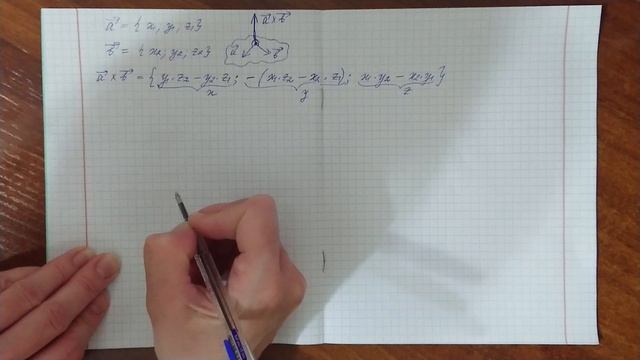 a⃗ = { x₁, y₁, z₁}
b⃗ = { x₂, y₂, z₂}
a⃗ × b⃗
a⃗
b⃗
a⃗ × b⃗ = { y₁·z₂ − y₂·z₁; −(x₁·z₂ − x₂·z₁); x₁·y₂ − x₂·y₁}
x y z